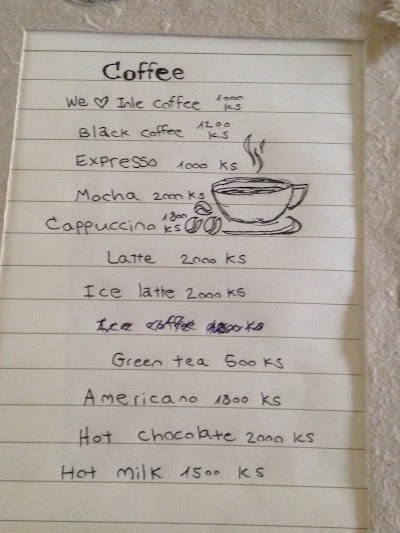 Coffee
We ♡ Inle coffee 1000 KS
Black coffee 1200 KS
Expresso 1000 KS
Mocha 2000 KS
Cappuccino 1800 KS
Latte 2000 KS
Ice latte 2000 KS
Ice coffee
Green tea 500 KS
Americano 1800 KS
Hot chocolate 2000 KS
Hot milk 1500 KS